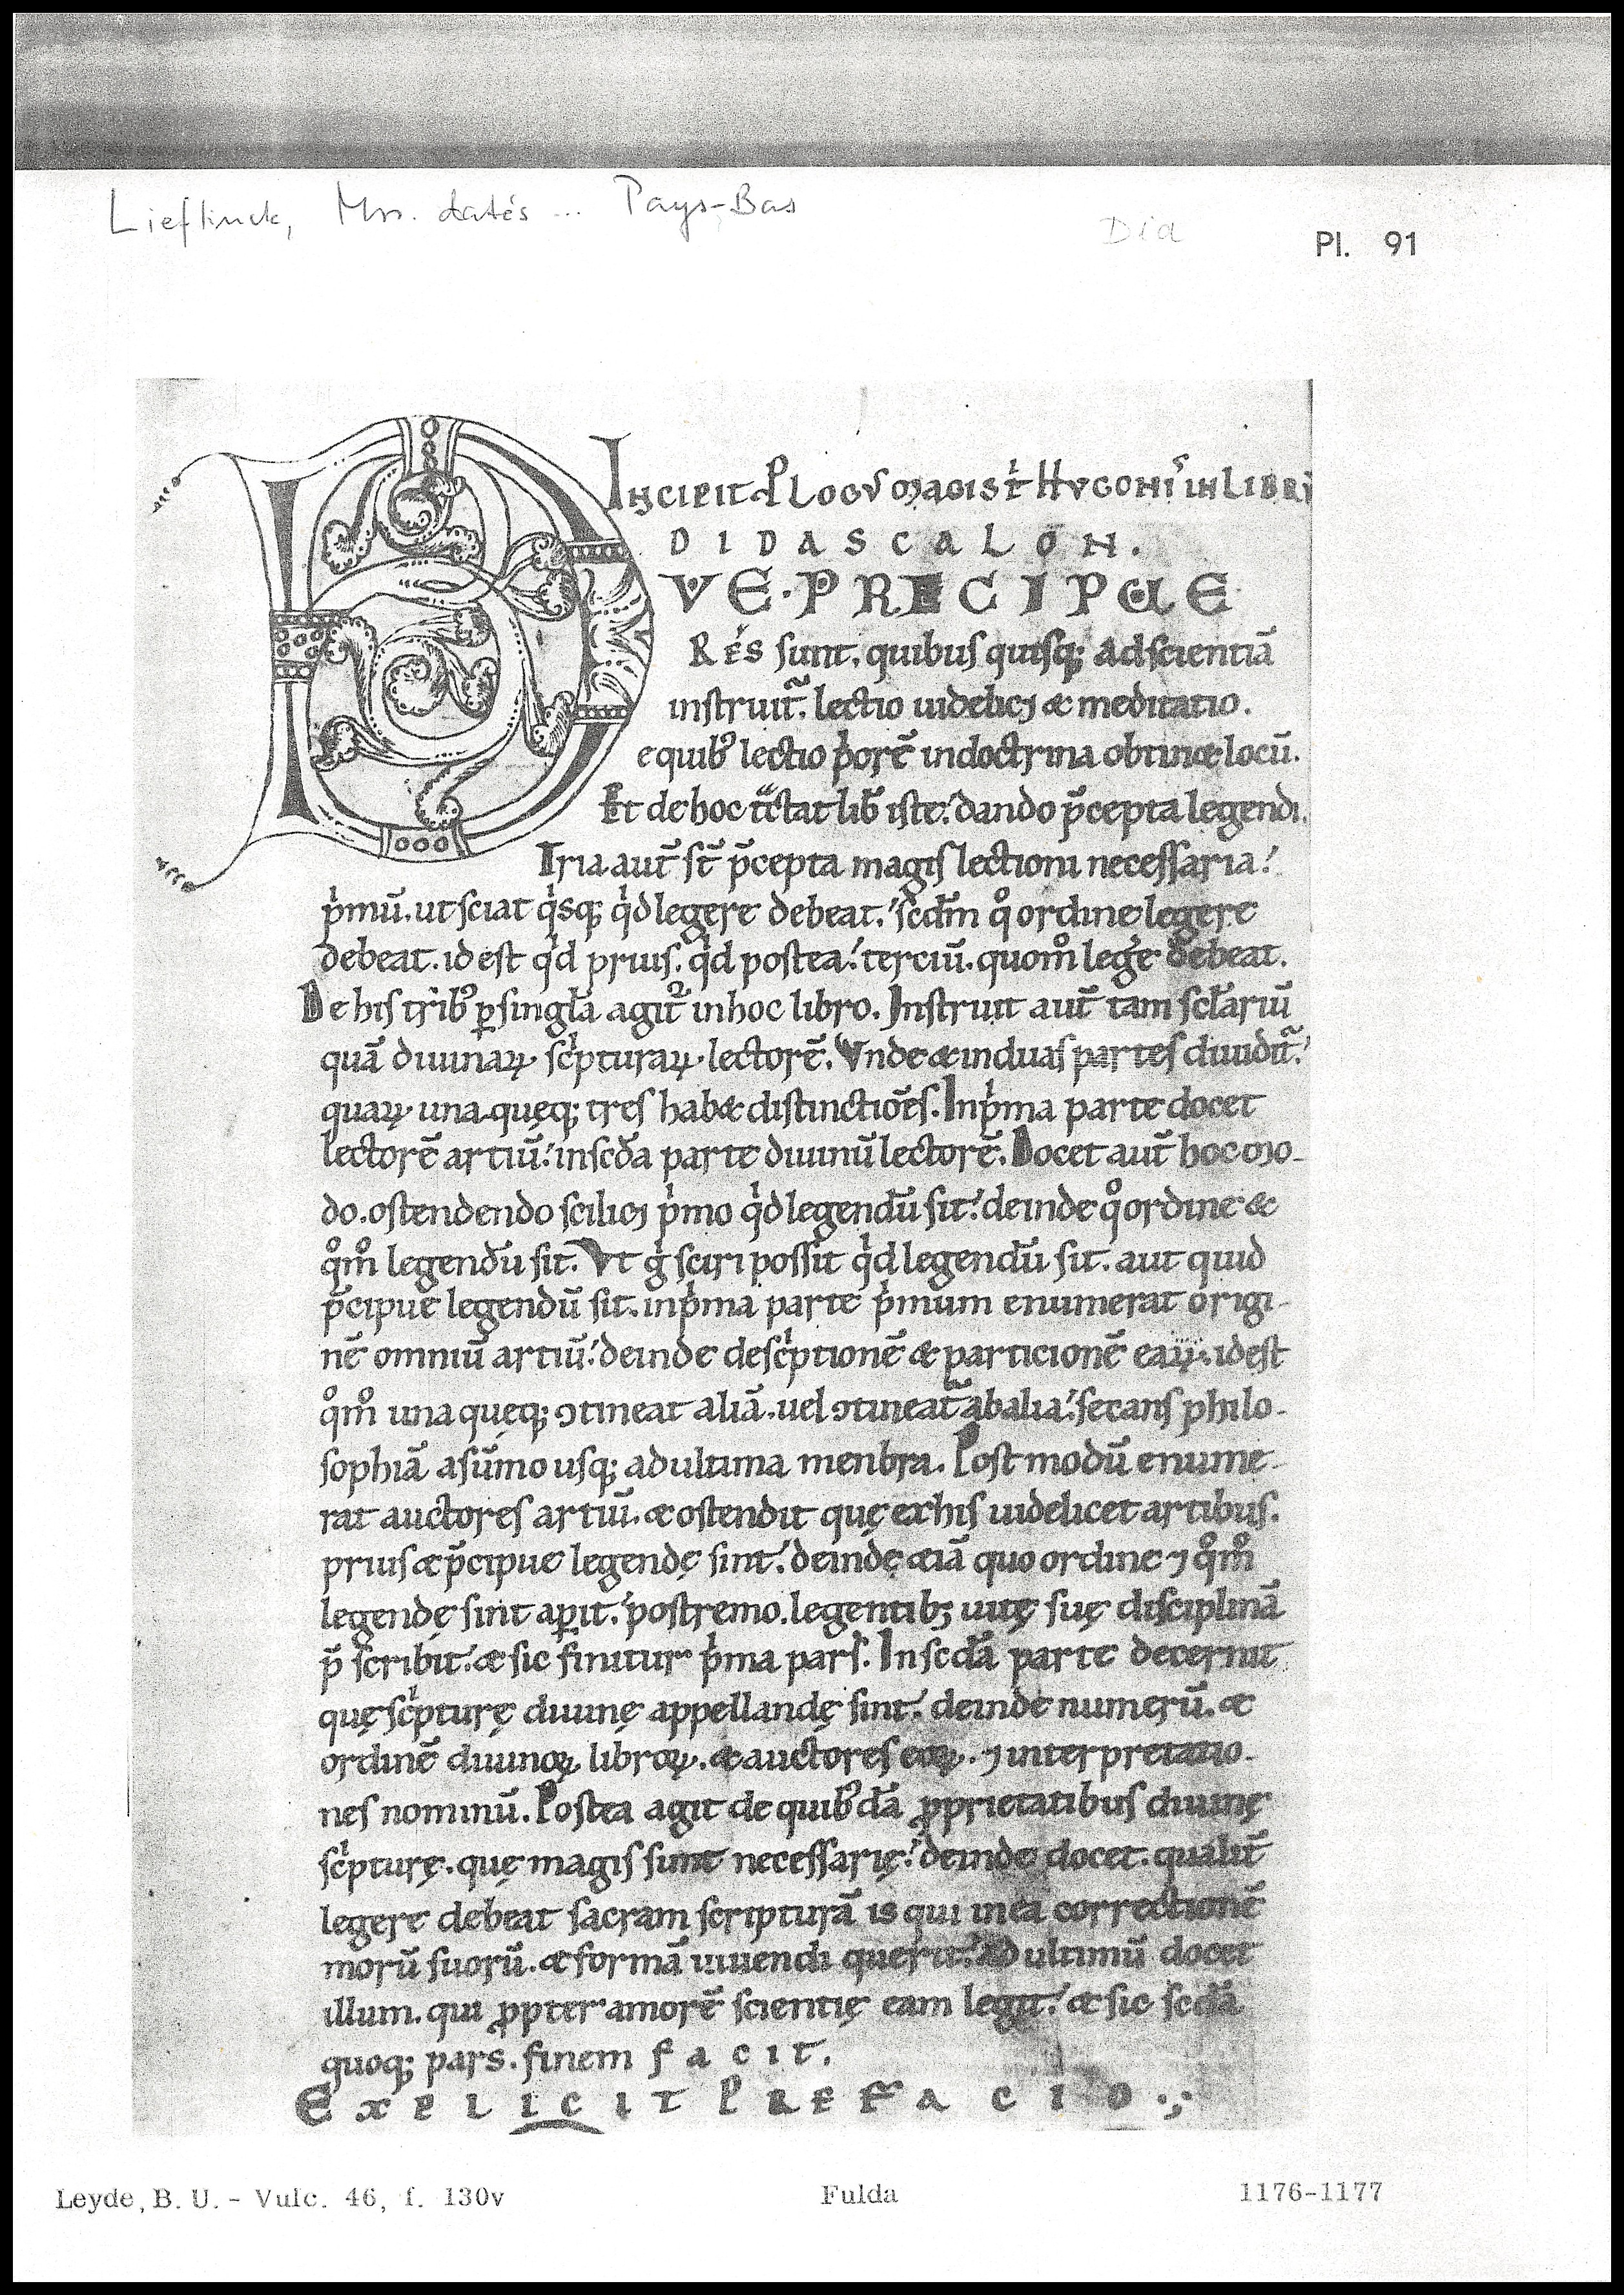 Lieftinck, Mss. datés ... Pays-Bas
Dia
Pl. 91
Incipit P̲logꝰ magist̍ Hugonis in librū
DIDASCALŌN.
VE·PRECIPUE
Res sunt, quibus quisq; ad scientiā
instruit᷑. lectio uidelicꝫ & meditatio.
e quibꝰ lectio p̍orē in doctrina obtin& locū.
Et de hoc tͣctat lib̄ iste.' dando p̄cepta legendi.
Tria aut̄ st̄ p̄cepta magis lectioni necessaria.'
p̍mū. ut sciat q̍sq; q̍d legere debeat.' scd̄m qͦ ordine legere
debeat. id est q̍d prius. q̍d postea.' terciū. quom̊ leg̍e debeat.
De his trib̍ꝰ ꝑ singl̄a agit᷑ in hoc libro. Instruit aut̄ tam scl̄ariū
quā diuinaꝝ sc̍pturaꝝ lectorē. Vnde & in duas partes diuidit᷑.'
quaꝝ una queq; tres hab& distinctiōes. In p̍ma parte docet
lectorē artiū.' in scd̄a parte diuinū lectorē. Docet aut̄ hoc mo-
do. ostendendo scilicꝫ p̍mo q̍d legendū sit.' deinde qͦ ordine &
qͦm̊ legendū sit. Vt g̍ sciri possit q̍d legendū sit. aut quid
p̄cipue legendū sit. in p̍ma parte p̍mum enumerat origi-
nē omniū artiū.' deinde desc̍ptionē & particionē eaꝝ. id est
qͦm̊ una queq; ꝯtineat aliā. uel ꝯtineat᷑ ab alia.' secans philo-
sophiā a sūmo usq; ad ultima menbra. Postmodū enume-
rat auctores artiū. & ostendit quę ex his uidelicet artibus.
prius & p̄cipue legendę sint.' deindę &iā quo ordine ⁊ qͦm̊
legendę sint aꝑit.' postremo. legentibꝫ uitę suę disciplinā
p̄scribit.' & sic finitur p̍ma pars. In scd̄a parte decernit
quę sc̍pturę diuinę appellandę sint.' deinde numerū. &
ordinē diuinoꝝ libroꝝ. & auctores eoꝝ. ⁊ interpretatio-
nes nominū. Postea agit de quibꝰdā ꝓprietatibus diuinę
sc̍pturę. quę magis sunt necessarię.' deinde docet. qualit̄
legere debeat sacram scripturā is qui in ea correctionē
morū suorū. & formā uiuendi querit.' Ad ultimū docet
illum. qui ꝓpter amorē scientię eam legit.' & sic scd̄a
quoq; pars. finem facit.
EXPLICIT PREFACIO.;
Leyde, B. U. - Vulc. 46, f. 130v
Fulda
1176-1177